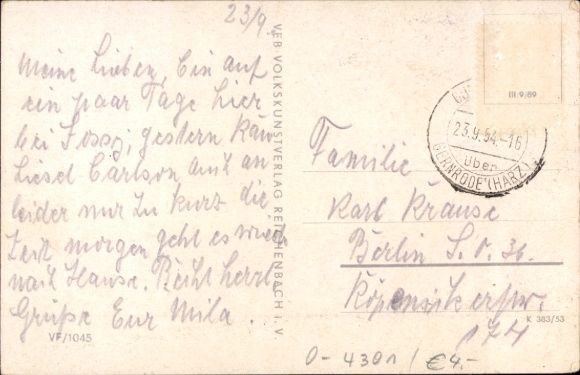 23/9.
Meine Lieben, bin auf
ein paar Tage hier
bei Jossy, gestern kam
Liesel Carlson auch an
leider nur zu kurz die
Zeit morgen geht es wieder
nach Hause. Recht herzl
Grüße Eur Mila.
VF/1045
VEB VOLKSKUNSTVERLAG REICHENBACH i. V.
III/9/89
23.9.54.-16
über
GERNRODE (HARZ)
Familie
Karl Krause
Berlin S.O. 36.
Köpenikerstr.
174
K 383/53
0-4301/€4.-